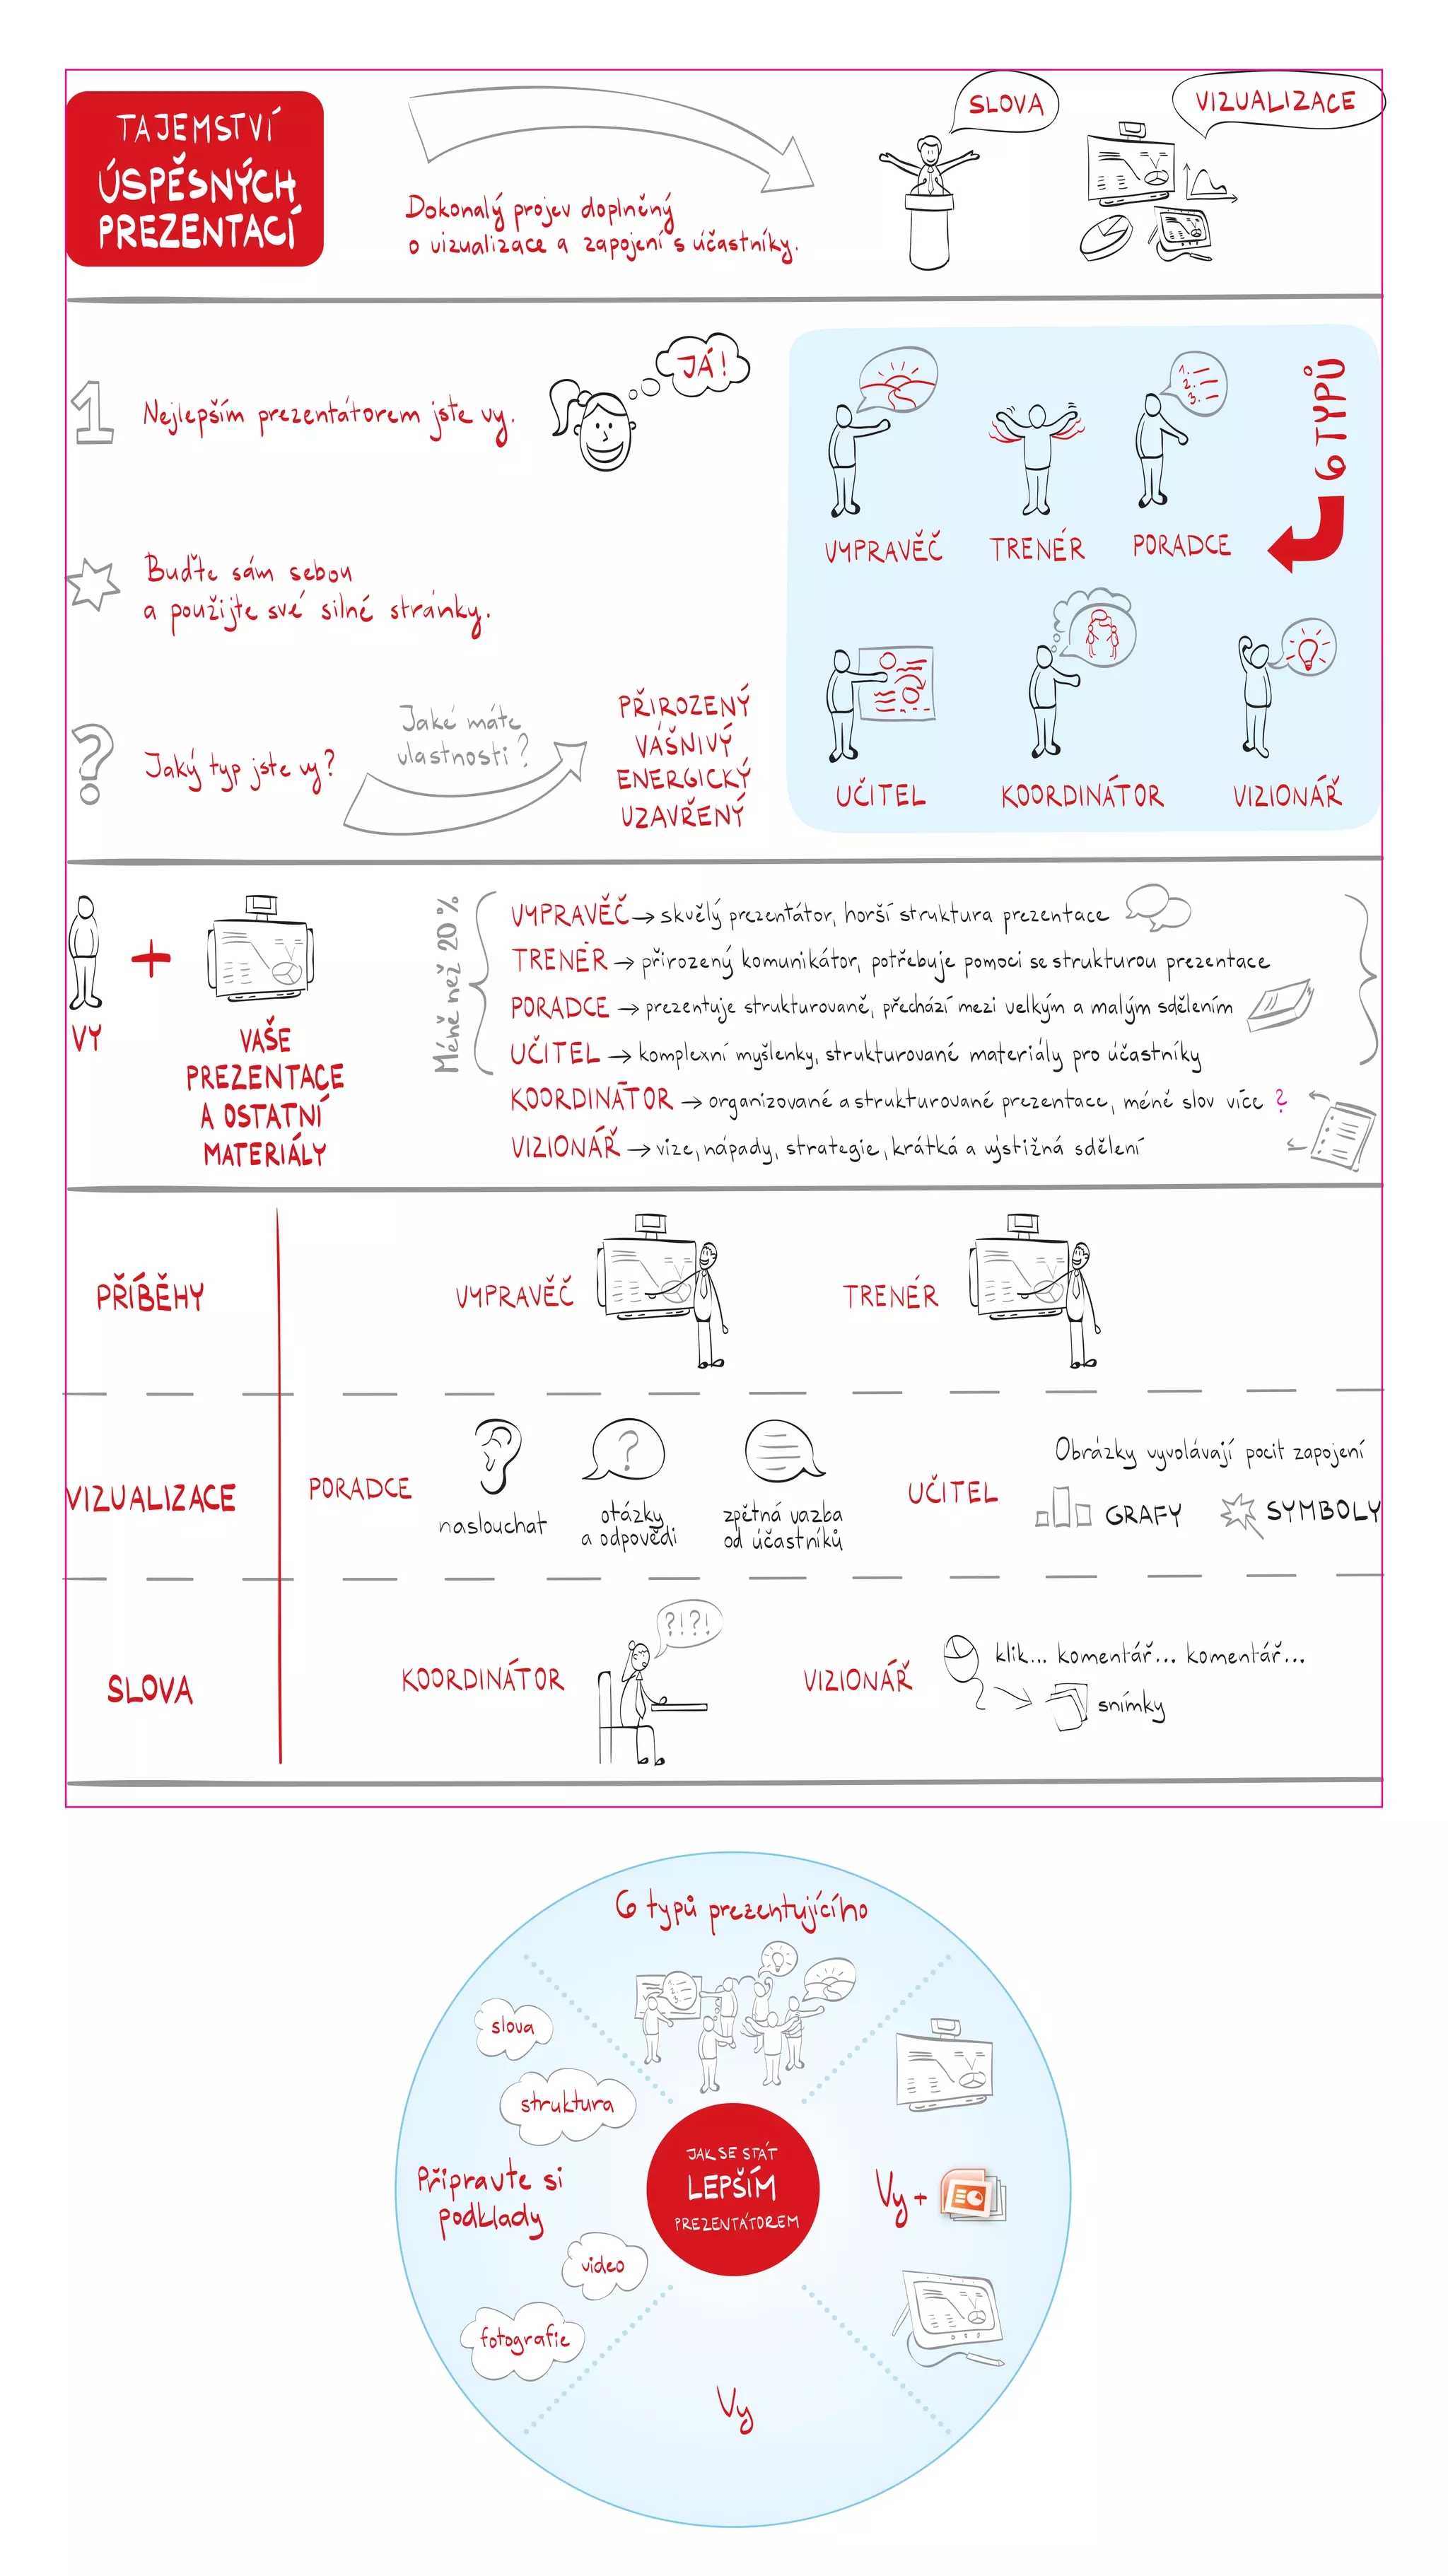 TAJEMSTVÍ
ÚSPĚSNÝCH
PREZENTACÍ
Dokonalý projev doplněný
o vizualizace a zapojení s účastníky.
SLOVA
VIZUALIZACE
1
Nejlepším prezentátorem jste vy.
JÁ!
Buďte sám sebou
a použijte své silné stránky.
?
Jaký typ jste vy?
Jaké máte
vlastnosti?
PŘIROZENÝ
VÁŠNIVÝ
ENERGICKÝ
UZAVŘENÝ
6 TYPŮ
1.
2.
3.
VYPRAVĚČ
TRENÉR
PORADCE
UČITEL
KOORDINÁTOR
VIZIONÁŘ
VY
+
VAŠE
PREZENTACE
A OSTATNÍ
MATERIÁLY
Méně než 20 %
VYPRAVĚČ → skvělý prezentátor, horší struktura prezentace
TRENÉR → přirozený komunikátor, potřebuje pomoci se strukturou prezentace
PORADCE → prezentuje strukturovaně, přechází mezi velkým a malým sdělením
UČITEL → komplexní myšlenky, strukturované materiály pro účastníky
KOORDINÁTOR → organizované a strukturované prezentace, méně slov více ?
VIZIONÁŘ → vize, nápady, strategie, krátká a výstižná sdělení
PŘÍBĚHY
VYPRAVĚČ
TRENÉR
VIZUALIZACE
PORADCE
naslouchat
?
otázky
a odpovědi
zpětná vazba
od účastníků
UČITEL
Obrázky vyvolávají pocit zapojení
GRAFY
SYMBOLY
SLOVA
KOORDINÁTOR
?!?!
VIZIONÁŘ
klik... komentář... komentář...
snímky
6 typů prezentujícího
slova
struktura
Připravte si
podklady
video
fotografie
JAK SE STÁT
LEPŠÍM
PREZENTÁTOREM
Vy +
Vy